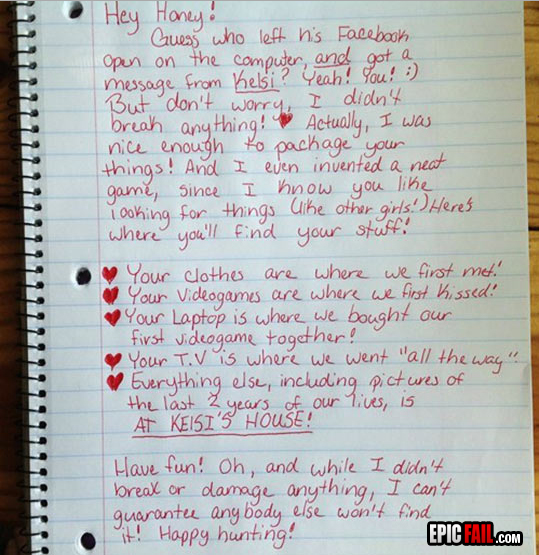 Hey Honey!
Guess who left his Facebook
open on the computer, and got a
message from Kelsi? Yeah! You! :)
But don't worry, I didn't
break anything! ♥ Actually, I was
nice enough to package your
things! And I even invented a neat
game, since I know you like
looking for things (like other girls!) Here's
where you'll find your stuff!
♥ Your clothes are where we first met!
♥ Your videogames are where we first kissed!
♥ Your Laptop is where we bought our
first videogame together!
♥ Your T.V is where we went "all the way".
♥ Everything else, including pictures of
the last 2 years of our lives, is
AT KELSI'S HOUSE!
Have fun! Oh, and while I didn't
break or damage anything, I can't
guarantee anybody else won't find
it! Happy hunting!
EPICFAIL.com